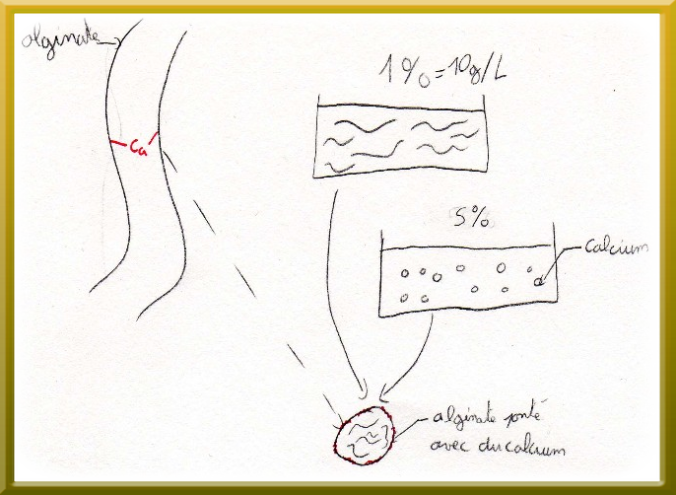 alginate
1% = 10g/L
Ca
5%
calcium
alginate ponté
avec du calcium